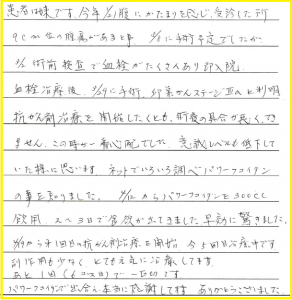 患者は妹です。今年 1/21 腹にかたまりを感じ、受診した所
9cm位の腫瘍があると申 に手術予定でしたが
術前検査で血栓がたくさんあり即入院。
血栓治療後、 に手術、卵巣がんステージⅢAと判明
抗がん剤治療を開始したくとも、術後の具合が良くでき
ません。この時が一番心配でした。意識レベルも低下して
いた様に思います。ネットでいろいろ調べパワーフコイダン
の事を知りました。 からパワーフコイダンを300CC
飲用、2〜3日で食欲が出てきました。早効に驚きました。
から1回目の抗がん剤治療を開始 今5回目治療中です
副作用も少なく とても元気に治療してます。
あと1回(6コース目)で一段落です
パワーフコイダンに出会い本当に感謝してます ありがとうございました。